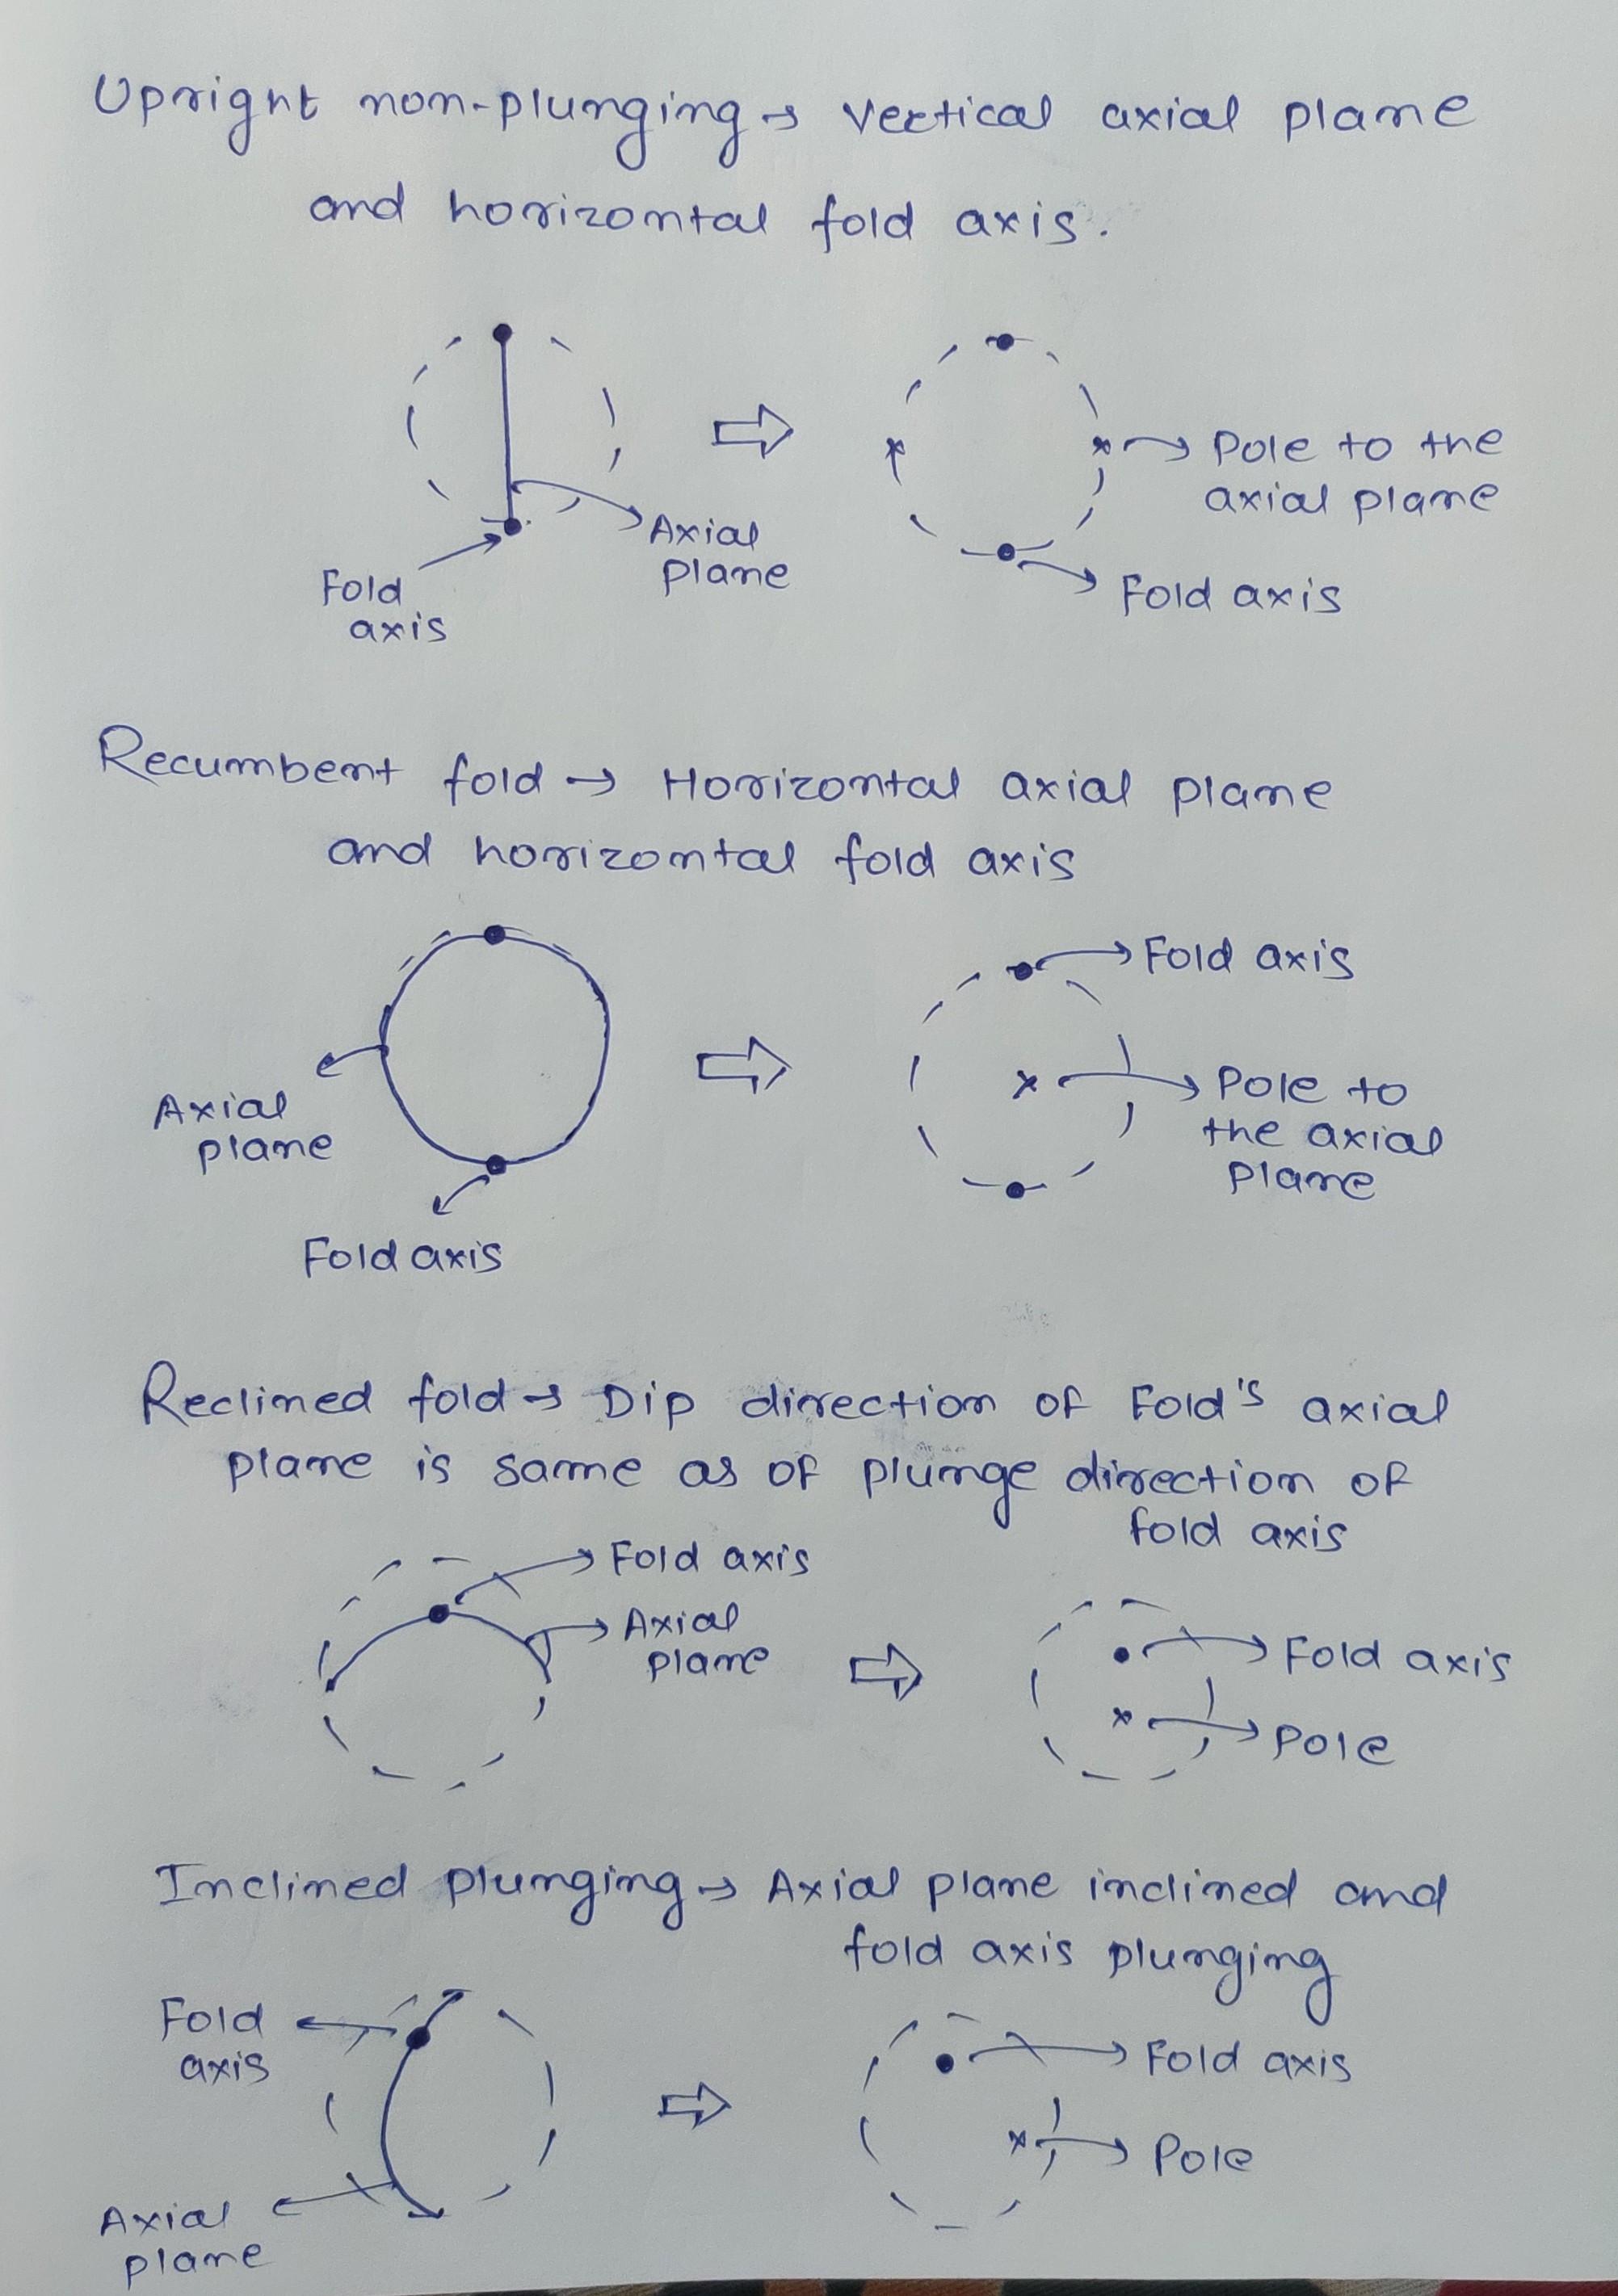 Upright non-plunging → Vertical axial plane
and horizontal fold axis.
Pole to the
axial plane
Axial
plane
Fold
axis
Fold axis
Recumbent fold → Horizontal axial plane
and horizontal fold axis
Fold axis
Axial
plane
Pole to
the axial
plane
Fold axis
Reclined fold → Dip direction of Fold's axial
plane is same as of plunge direction of
fold axis
Fold axis
Axial
plane
Fold axis
Pole
Inclined plunging → Axial plane inclined and
fold axis plunging
Fold
axis
Fold axis
Pole
Axial
plane